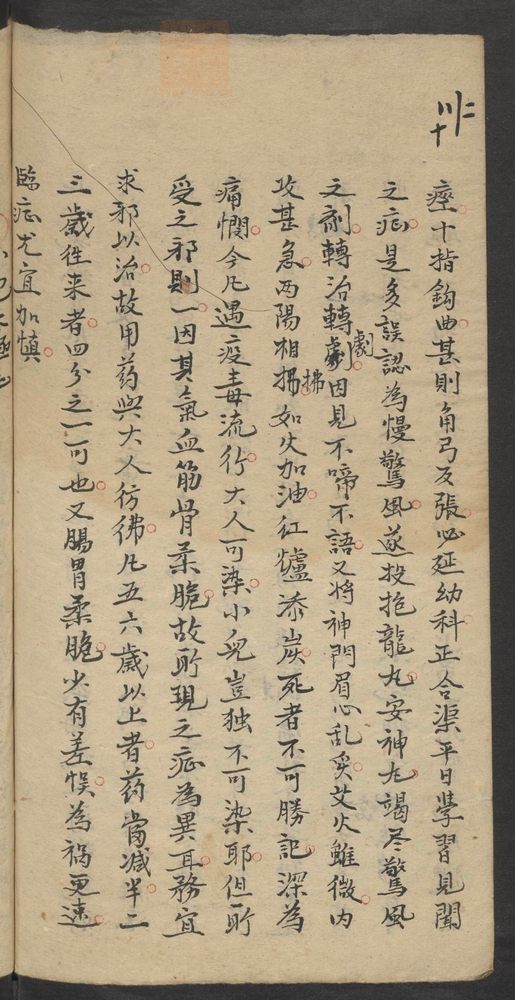 㐅二
十
痙十指鈎曲甚則角弓反張必延幼科正合渠平日學習見聞
之症是多誤認為慢驚風遂投抱龍丸安神丸竭尽驚風
之劑轉治轉劇劇因見不啼不語又将神門眉心乱灸艾火雖微内
攻甚急两陽相拂拂如火加油红爐添炭死者不可勝記深為
痛憫今凡遇疫毒流行大人可染小兒豈独不可染耶但所
受之邪則一因其氣血筋骨柔脆故所現之症為異耳務宜
求邪以治故用药與大人彷彿凡五六歲以上者药當减半二
三歲往来者四分之一可也又腸胃柔脆少有差悮為祸更速
臨症尤宜加慎